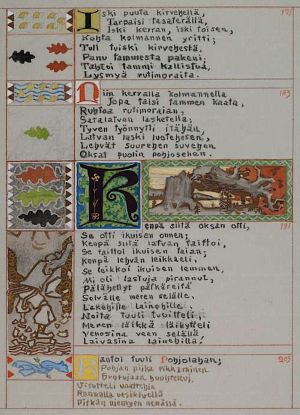 Iski puuta kirvehellä, 175
Tarpaisi tasaterällä.
Iski kerran, iski toisen,
Kohta kolmannen yritti;
Tuli tuiski kirvehestä,
Panu tammesta pakeni;
Tahtoi tammi kallistua,
Lysmyä rutimoraita.
Niin kerralla kolmannella 183
Jopa taisi tammen kaata,
Ruhtoa rutimoraian,
Satalatvan lasketella.
Tyven työnnytti itähän,
Latvan laski luotehesen,
Lehvät suurehen suvehen,
Oksat puolin pohjosehen.
Kenpä siitä oksan otti, 191
Se otti ikuisen onnen;
Kenpä siitä latvan taittoi,
Se taittoi ikuisen taian;
Kenpä lehvän leikkaeli,
Se leikkoi ikuisen lemmen.
Mi oli lastuja pirannut,
Pälähellyt pälkäreitä
Selvälle meren selälle,
Lakehille lainehille,
Noita tuuli tuuitteli,
Meren läikkä läikytteli
Venosina veen selällä
Laivasina lainehilla.
Kantoi tuuli Pohjolahan; 205
Pohjan piika pikkarainen
Huntujaan huuhtelevi,
Virutteli vaattehia
Rannalla vesikivellä
Pitkän niemyen nenässä.